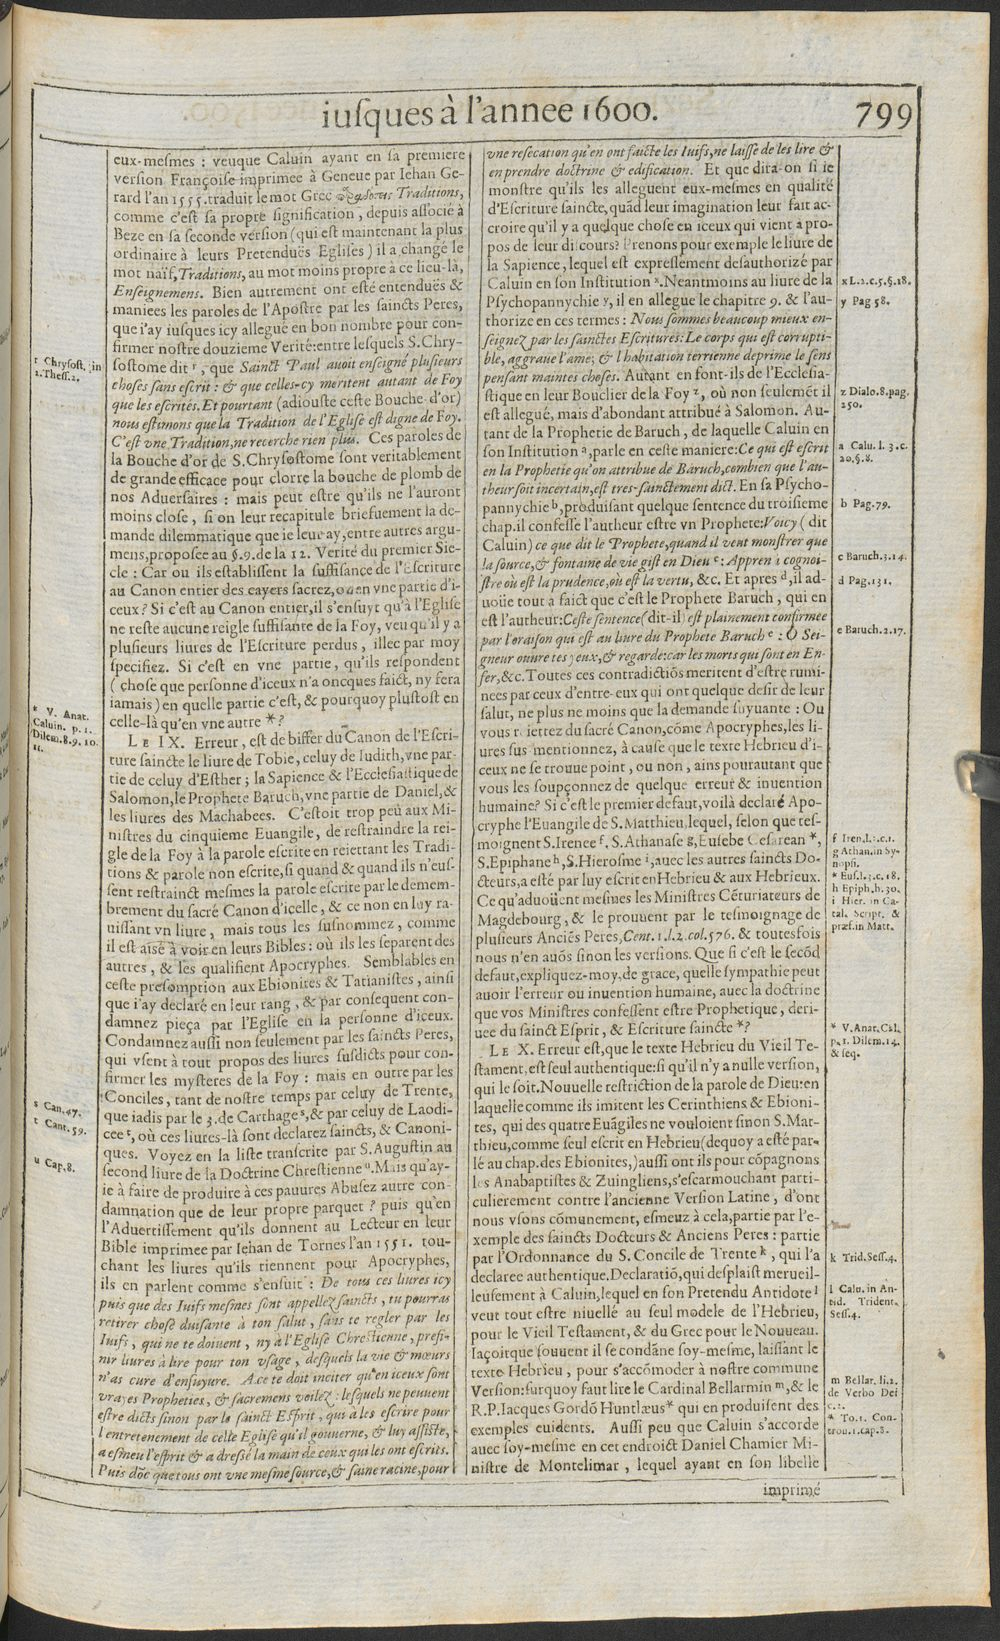 iusques à l'annee 1600. 799
eux-mesmes : veuque Caluin ayant en sa premiere
version Françoise imprimee à Geneue par Iehan Ge-
rard l'an 1555. traduit le mot Grec Traditions,
comme c'est sa propre signification, depuis associé à
Beze en sa seconde version (qui est maintenant la plus
ordinaire à leurs Pretenduës Eglises) il a changé le
mot naïf, Traditions, au mot moins propre à ce lieu-là,
Enseignemens. Bien autrement ont esté entenduës &
maniees les paroles de l'Apostre par les saincts Peres,
que i'ay iusques icy allegué en bon nombre pour con-
firmer nostre douzieme Verité: entre lesquels S. Chry-
sostome dit r, que Sainct Paul auoit enseigné plusieurs
choses sans escrit : & que celles-cy meritent autant de Foy
que les escrites. Et pourtant (adiouste ceste Bouche-d'or)
nous estimons que la Tradition de l'Eglise est digne de Foy.
C'est vne Tradition, ne recerche rien plus. Ces paroles de
la Bouche d'or de S. Chrysostome sont veritablement
de grande efficace pour clorre la bouche de plomb de
nos Aduersaires : mais peut estre qu'ils ne l'auront
moins close, si on leur recapitule briefuement la de-
mande dilemmatique que ie leur ay, entre autres argu-
mens, proposee au §.9. de la 12. Verité du premier Sie-
cle : Car ou ils establissent la suffisance de l'Escriture
au Canon entier des cayers sacrez, ou en vne partie d'i-
ceux? Si c'est au Canon entier, il s'ensuyt qu'à l'Eglise
ne reste aucune reigle suffisante de la Foy, veu qu'il y a
plusieurs liures de l'Escriture perdus, illec par moy
specifiez. Si c'est en vne partie, qu'ils respondent
(chose que personne d'iceux n'a oncques faict, ny fera
iamais) en quelle partie c'est, & pourquoy plustost en
celle-là qu'en vne autre *?
LE IX. Erreur, est de biffer du Canon de l'Escri-
ture saincte le liure de Tobie, celuy de Iudith, vne par-
tie de celuy d'Esther; la Sapience & l'Ecclesiastique de
Salomon, le Prophete Baruch, vne partie de Daniel, &
les liures des Machabees. C'estoit trop peu aux Mi-
nistres du cinquieme Euangile, de restraindre la rei-
gle de la Foy à la parole escrite en reiettant les Tradi-
tions & parole non escrite, si quand & quand ils n'eus-
sent restrainct mesmes la parole escrite par le demem-
brement du sacré Canon d'icelle, & ce non en luy ra-
uissant vn liure, mais tous les susnommez, comme
il est aisé à voir en leurs Bibles: où ils les separent des
autres, & les qualifient Apocryphes. Semblables en
ceste presomption aux Ebionites & Tatianistes, ainsi
que i'ay declaré en leur rang, & par consequent con-
damnez pieça par l'Eglise en la personne d'iceux.
Condamnez aussi non seulement par les saincts Peres,
qui vsent à tout propos des liures susdicts pour con-
firmer les mysteres de la Foy : mais en outre par les
Conciles, tant de nostre temps par celuy de Trente,
que iadis par le 3. de Carthage s, & par celuy de Laodi-
cee t, où ces liures-là sont declarez saincts, & Canoni-
ques. Voyez en la liste transcrite par S. Augustin au
second liure de la Doctrine Chrestienne u. Mais qu'ay-
ie à faire de produire à ces pauures Abusez autre con-
damnation que de leur propre parquet ? puis qu'en
l'Aduertissement qu'ils donnent au Lecteur en leur
Bible imprimee par Iehan de Tornes l'an 1551. tou-
chant les liures qu'ils tiennent pour Apocryphes,
ils en parlent comme s'ensuit : De tous ces liures icy
puis que des Iuifs mesmes sont appellez saincts, tu pourras
retirer chose duisante à ton salut, sans te regler par les
Iuifs, qui ne te doiuent, ny à l'Eglise Chrestienne, presi-
nir liures à lire pour ton vsage, desquels la vie & mœurs
n'as cure d'ensuyure. A ce te doit inciter qu'en iceux sont
vrayes Propheties, & sacremens voilez: lesquels ne peuuent
estre dicts sinon par le sainct Esprit, qui a les escrire pour
l'entretenement de celle Eglise qu'il gouuerne, & luy assiste,
a esmeu l'esprit & a dressé la main de ceux qui les ont escrits.
Puis dõc que tous ont vne mesme source, & saine racine, pour
r Chrysost. in
2. Thess. 2.
* V. Anat.
Caluin. p. 1.
Dilem. 8. 9. 10.
11.
s Can. 47.
t Cant. 59.
u Cap. 8.
vne resecation qu'en ont faicte les Iuifs, ne laisse de les lire &
en prendre doctrine & edification. Et que dira-on si ie
monstre qu'ils les alleguent eux-mesmes en qualité
d'Escriture saincte, quãd leur imagination leur fait ac-
croire qu'il y a quelque chose en iceux qui vient à pro-
pos de leur discours? Prenons pour exemple le liure de
la Sapience, lequel est expressement desauthorizé par
Caluin en son Institution x. Neantmoins au liure de la
Psychopannychie y, il en allegue le chapitre 9. & l'au-
thorize en ces termes : Nous sommes beaucoup mieux en-
seignez par les sainctes Escritures: Le corps qui est corrupti-
ble, aggraue l'ame, & l'habitation terrienne deprime le sens
pensant maintes choses. Autant en font-ils de l'Ecclesia-
stique en leur Bouclier de la Foy z, où non seulemẽt il
est allegué, mais d'abondant attribué à Salomon. Au-
tant de la Prophetie de Baruch, de laquelle Caluin en
son Institution a, parle en ceste maniere: Ce qui est escrit
en la Prophetie qu'on attribue de Baruch, combien que l'au-
theur soit incertain, est tres-sainctement dict. En sa Psycho-
pannychie b, produisant quelque sentence du troisieme
chap. il confesse l'autheur estre vn Prophete: Voicy (dit
Caluin) ce que dit le Prophete, quand il veut monstrer que
la source, & fontaine de vie gist en Dieu c: Appren à cognoi-
stre où est la prudence, où est la vertu, &c. Et apres d, il ad-
uoüe tout à faict que c'est le Prophete Baruch, qui en
est l'autheur: Ceste sentence (dit-il) est plainement confirmee
par l'oraison qui est au liure du Prophete Baruch e : O Sei-
gneur ouure tes yeux, & regarde: car les morts qui sont en En-
fer, &c. Toutes ces contradictiõs meritent d'estre rumi-
nees par ceux d'entre-eux qui ont quelque desir de leur
salut, ne plus ne moins que la demande suyuante : Ou
vous reiettez du sacré Canon, cõme Apocryphes, les li-
ures sus mentionnez, à cause que le texte Hebrieu d'i-
ceux ne se trouue point, ou non, ains pourautant que
vous les soupçonnez de quelque erreur & inuention
humaine? Si c'est le premier defaut, voilà declaré Apo-
cryphe l'Euangile de S. Matthieu, lequel, selon que tes-
moignent S. Irenee f, S. Athanase g, Eusebe Cesarean *,
S. Epiphane h, S. Hierosme i, auec les autres saincts Do-
cteurs, a esté par luy escrit en Hebrieu & aux Hebrieux.
Ce qu'aduoüent mesmes les Ministres Cẽturiateurs de
Magdebourg, & le prouuent par le tesmoignage de
plusieurs Anciẽs Peres, Cent. 1. l. 2. col. 576. & toutesfois
nous n'en auõs sinon les versions. Que si c'est le secõd
defaut, expliquez-moy, de grace, quelle sympathie peut
auoir l'erreur ou inuention humaine, auec la doctrine
que vos Ministres confessent estre Prophetique, deri-
uee du sainct Esprit, & Escriture saincte *?
LE X. Erreur est, que le texte Hebrieu du Vieil Te-
stament, est seul authentique: si qu'il n'y a nulle version,
qui le soit. Nouuelle restriction de la parole de Dieu: en
laquelle comme ils imitent les Cerinthiens & Ebioni-
tes, qui des quatre Euãgiles ne vouloient sinon S. Mat-
thieu, comme seul escrit en Hebrieu (dequoy a esté par-
lé au chap. des Ebionites,) aussi ont ils pour cõpagnons
les Anabaptistes & Zuingliens, s'escarmouchant parti-
culierement contre l'ancienne Version Latine, d'ont
nous vsons cõmunement, esmeuz à cela, partie par l'e-
xemple des saincts Docteurs & Anciens Peres : partie
par l'Ordonnance du S. Concile de Trente k, qui l'a
declaree authentique. Declaratiõ, qui desplaist merueil-
leusement à Caluin, lequel en son Pretendu Antidote l
veut tout estre niuellé au seul modele de l'Hebrieu,
pour le Vieil Testament, & du Grec pour le Nouueau.
Iaçoit que souuent il se condãne soy-mesme, laissant le
texte Hebrieu, pour s'accõmoder à nostre commune
Version: surquoy faut lire le Cardinal Bellarmin m, & le
R.P. Iacques Gordõ Huntlæus * qui en produisent des
exemples euidents. Aussi peu que Caluin s'accorde
auec soy-mesme en cet endroict Daniel Chamier Mi-
nistre de Montelimar, lequel ayant en son libelle
imprimé
x L. 2. c. 5. §. 18.
y Pag 58.
z Dialo. 8. pag.
250.
a Calu. l. 3. c.
20. §. 8.
b Pag. 79.
c Baruch. 3. 14.
d Pag. 131.
e Baruch. 2. 17.
f Iren. l. 3. c. 1.
g Athan. in Sy-
nopsi.
* Eus. l. 3. c. 18.
h Epiph. h. 30.
i Hier. in Ca-
tal. Script. &
præf. in Matt.
* V. Anat. Cal.
p. 1. Dilem. 14.
& seq.
k Trid. Sess. 4.
l Calu. in An-
tid. Trident.
Sess. 4.
m Bellar. li. 2.
de Verbo Dei
c. 2.
* To. 1. Con-
trou. 1. cap. 8.